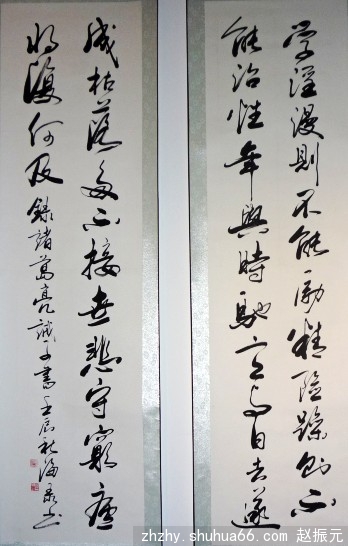 学淫漫則不能励精险躁则不
能治性年與時馳意与日去遂
成枯落多不接世悲守窮廬
将復何及 錄諸葛亮誡子書 壬辰秋海
zhzhy.shuhua66.com 赵振元